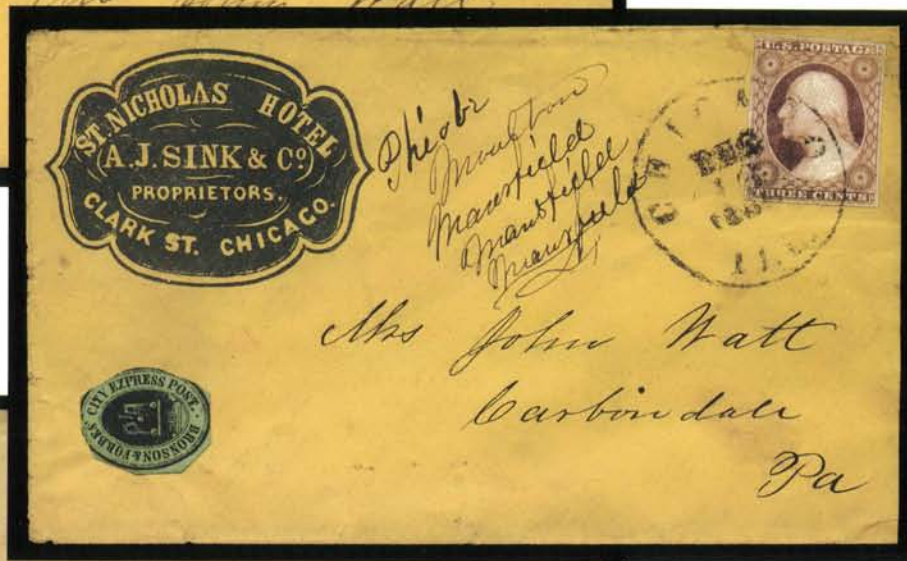 ST. NICHOLAS HOTEL
A. J. SINK & Co.
PROPRIETORS.
CLARK ST. CHICAGO.
Moulton
Mansfield
Mansfield
Mansfield
U.S. POSTAGE
THREE CENTS
CHICAGO
DEC
ILL.
Mrs John Watt
Carbondale
Pa
CITY EXPRESS POST.
BRONSON & FORBES'